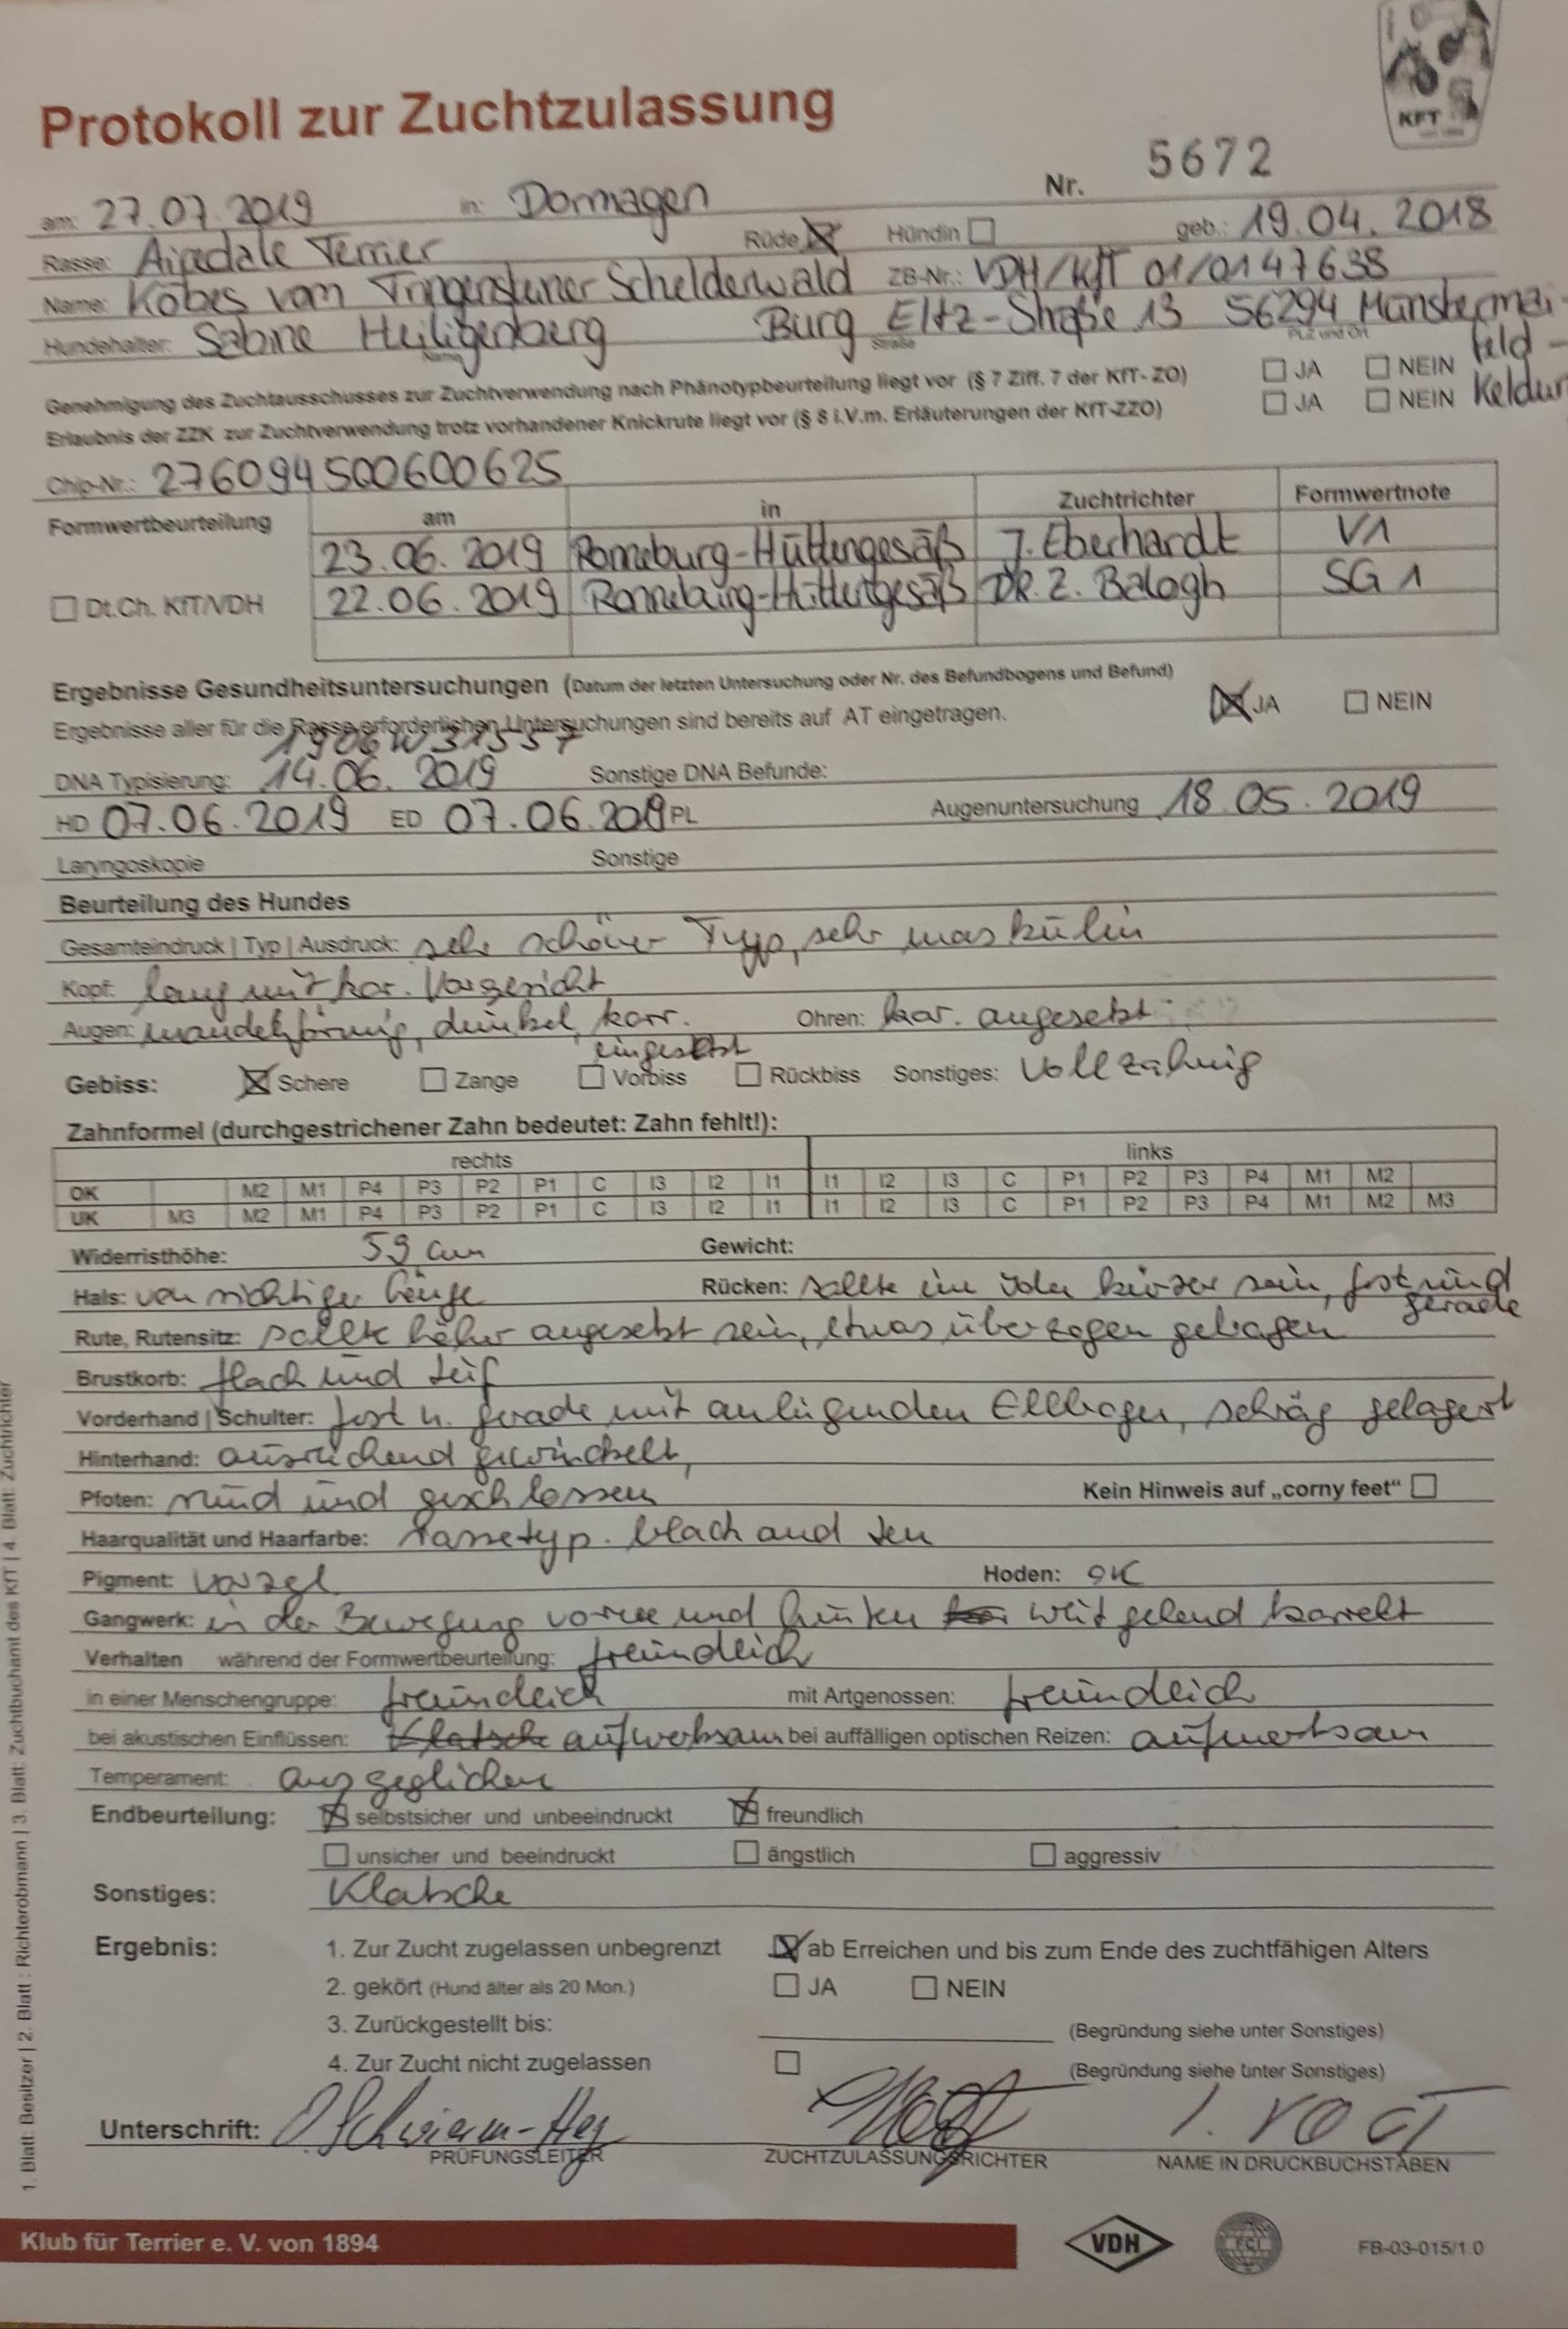 KFT
Protokoll zur Zuchtzulassung
Nr. 5672
am: 27.07.2019 in: Dormagen
Rasse: Airedale Terrier Rüde ☒ Hündin ☐ geb.: 19.04.2018
Name: Köbes vom Tringensteiner Schelderwald ZB-Nr.: VDH/KfT 01/0147638
Hundehalter: Sabine Heiligenberg Burg Eltz-Straße 13 56294 Münstermai-
Name Straße PLZ und Ort feld-
Genehmigung des Zuchtausschusses zur Zuchtverwendung nach Phänotypbeurteilung liegt vor (§ 7 Ziff. 7 der KfT-ZO) ☐ JA ☐ NEIN
Erlaubnis der ZZK zur Zuchtverwendung trotz vorhandener Knickrute liegt vor (§ 8 i.V.m. Erläuterungen der KfT-ZZO) ☐ JA ☐ NEIN
Chip-Nr.: 276094500600625
Formwertbeurteilung am in Zuchtrichter Formwertnote
23.06.2019 Ronneburg-Hüttengesäß J. Eberhardt V1
☐ Dt.Ch. KfT/VDH 22.06.2019 Ronneburg-Hüttengesäß DR. Z. Balogh SG 1
Ergebnisse Gesundheitsuntersuchungen (Datum der letzten Untersuchung oder Nr. des Befundbogens und Befund)
Ergebnisse aller für die Rasse erforderlichen Untersuchungen sind bereits auf AT eingetragen. ☒ JA ☐ NEIN
1906W31557
DNA Typisierung: 14.06.2019 Sonstige DNA Befunde:
HD 07.06.2019 ED 07.06.2019 PL Augenuntersuchung 18.05.2019
Laryngoskopie Sonstige
Beurteilung des Hundes
Gesamteindruck | Typ | Ausdruck: sehr schöner Typ, sehr maskulin
Kopf: lang mit kor. Vorgesicht
Augen: mandelförmig, dunkel, korr. Ohren: kor. angesetzt
eingesetzt
Gebiss: ☒ Schere ☐ Zange ☐ Vorbiss ☐ Rückbiss Sonstiges: Vollzahnig
Zahnformel (durchgestrichener Zahn bedeutet: Zahn fehlt!):
rechts links
OK M2 M1 P4 P3 P2 P1 C I3 I2 I1 I1 I2 I3 C P1 P2 P3 P4 M1 M2
UK M3 M2 M1 P4 P3 P2 P1 C I3 I2 I1 I1 I2 I3 C P1 P2 P3 P4 M1 M2 M3
Widerristhöhe: 59 cm Gewicht:
Hals: von richtiger Länge Rücken: sollte im kürzer sein, fest und
gerade
Rute, Rutensitz: sollte höher angesetzt sein, etwas überzogen getragen
Brustkorb: flach und tief
Vorderhand | Schulter: fest u. gerade mit anliegenden Ellbogen, schräg gelagert
Hinterhand: ausreichend gewinkelt,
Pfoten: rund und geschlossen Kein Hinweis auf „corny feet“ ☐
Haarqualität und Haarfarbe: rassetyp. black and ten
Pigment: vorzgl. Hoden: OK
Gangwerk: in der Bewegung vorne und hinten weitgehend korrekt
Verhalten während der Formwertbeurteilung: freundlich
in einer Menschengruppe: freundlich mit Artgenossen: freundlich
bei akustischen Einflüssen: Klatsche aufmerksam bei auffälligen optischen Reizen: aufmerksam
Temperament: ausgeglichen
Endbeurteilung: ☒ selbstsicher und unbeeindruckt ☒ freundlich
☐ unsicher und beeindruckt ☐ ängstlich ☐ aggressiv
Sonstiges: Klatsche
Ergebnis: 1. Zur Zucht zugelassen unbegrenzt ☒ ab Erreichen und bis zum Ende des zuchtfähigen Alters
2. gekört (Hund älter als 20 Mon.) ☐ JA ☐ NEIN
3. Zurückgestellt bis: (Begründung siehe unter Sonstiges)
4. Zur Zucht nicht zugelassen ☐ (Begründung siehe unter Sonstiges)
Unterschrift: I. VOGT
PRÜFUNGSLEITER ZUCHTZULASSUNGSRICHTER NAME IN DRUCKBUCHSTABEN
1. Blatt: Besitzer | 2. Blatt: Richterobmann | 3. Blatt: Zuchtbuchamt des KfT | 4. Blatt: Zuchtrichter
Klub für Terrier e. V. von 1894 VDH FCI FB-03-015/1.0